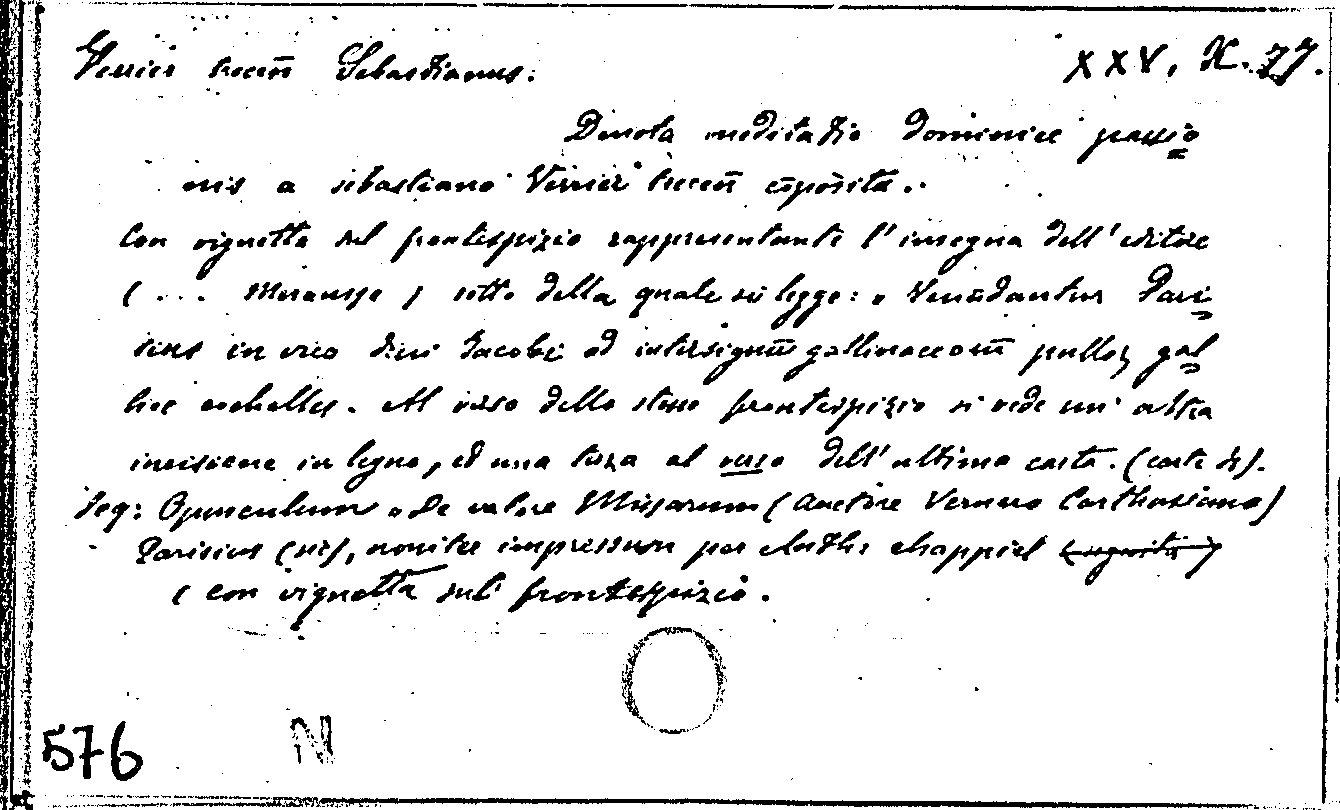 Verrier trecen̄ Sebastianus. XXV, K. 77.
Devota meditatio dominice passio
nis a sebastiano Verrier trecen̄ cōposita.
Con vignetta sul frontespizio rappresentante l'insegna dell'editore
( ... sotto della quale si legge: „ Venūdantur Pari
siis in vico divi Jacobi ad intersigniū gallinaceorū pulloꝝ gal
lice cochelles. Al verso dello stesso frontespizio si vede un'altra
incisione in legno, ed una terza al verso dell'ultima carta. (carte
Seg: Opusculum „ De valore Missarum (Auctore Vernero Carthusiano)
Parisius (sic), noviter impressum per Anth: chappiel
( con vignetta sul frontespizio.
576 N